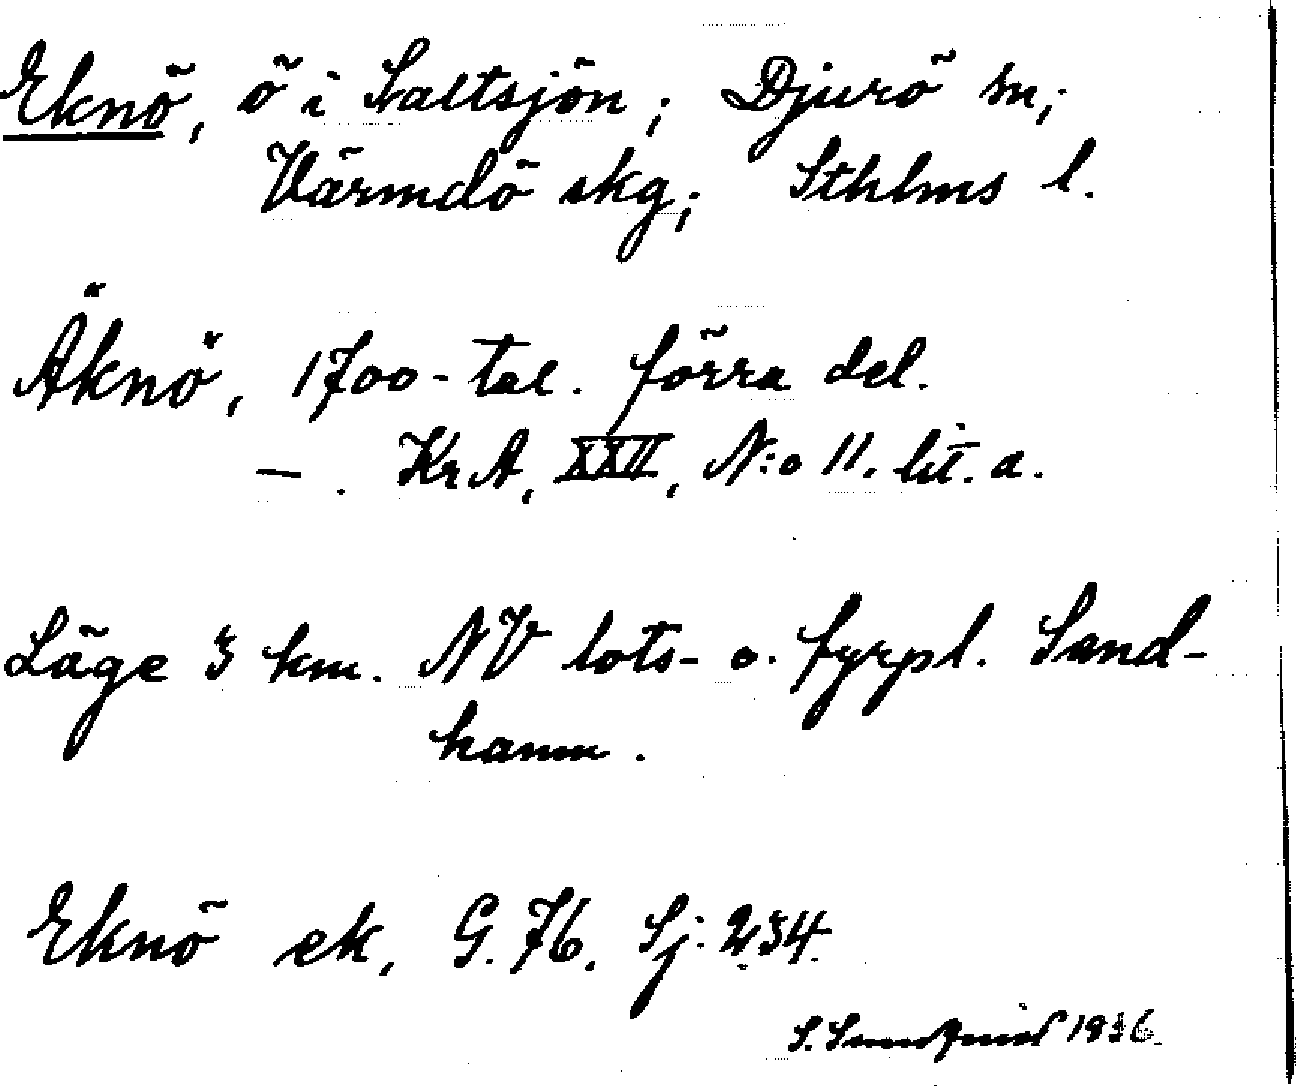 Eknö, ö i Saltsjön; Djurö sn;
Värmdö skg; Sthlms l.
Äknö, 1700-tal. förra del.
— . Kr A, XXII, N:o 11. lit. a.
Läge 3 km. NV lots- o. fyrpl. Sand-
hamn.
Eknö ek, G. 76. Sj: 234
S. Sundqvist 1936